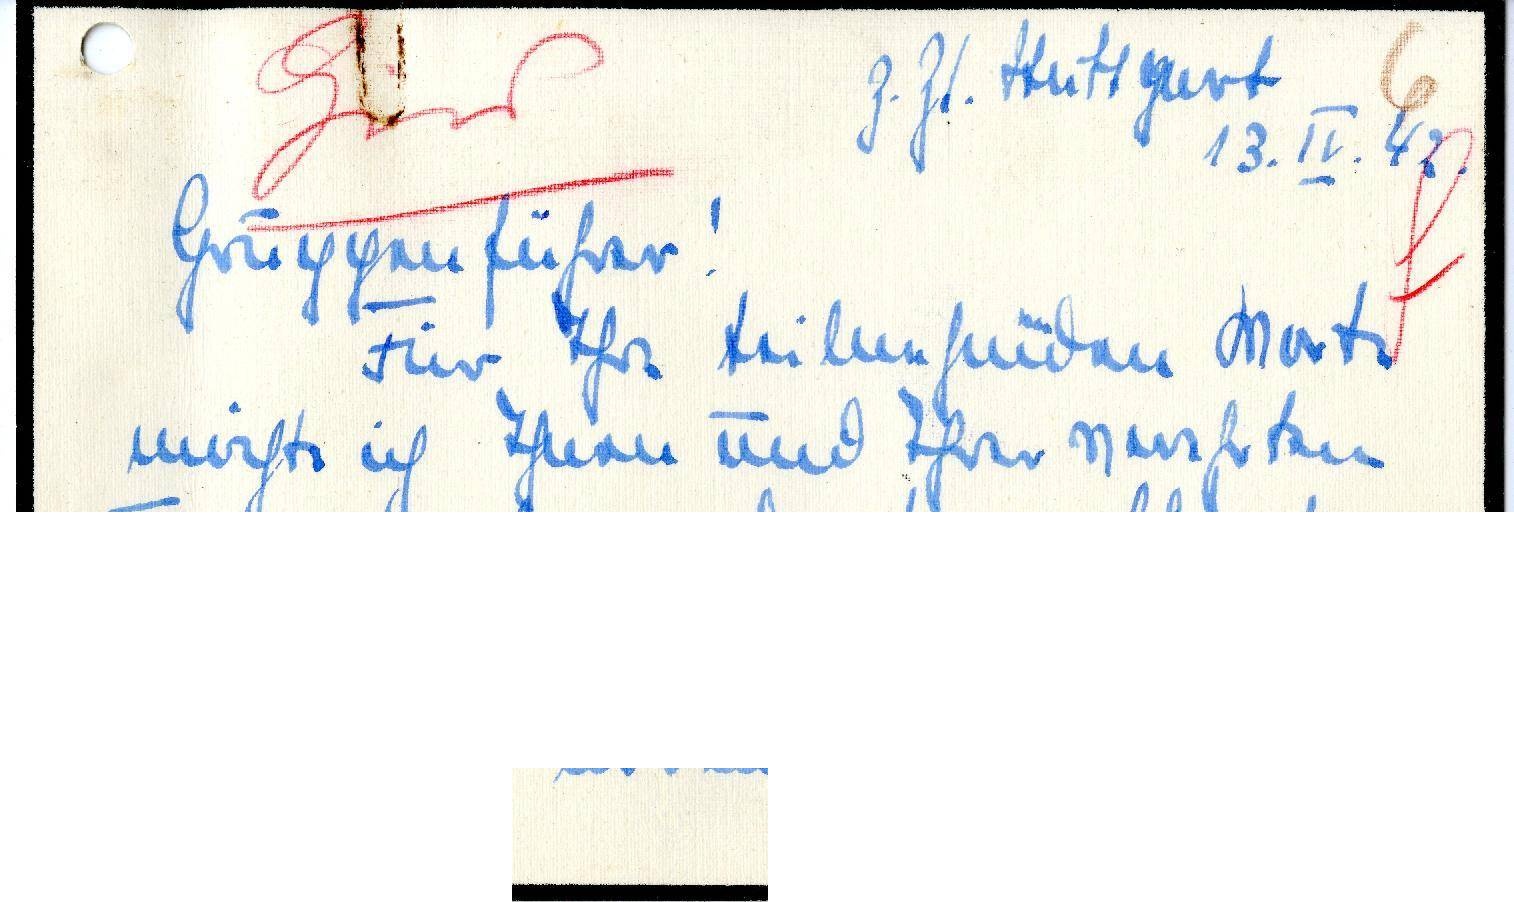 z. Zt. Stuttgart
13. II. 42.
Gruppenführer!
Für Ihre teilnehmenden Worte
möchte ich Ihnen und Ihrer verehrten